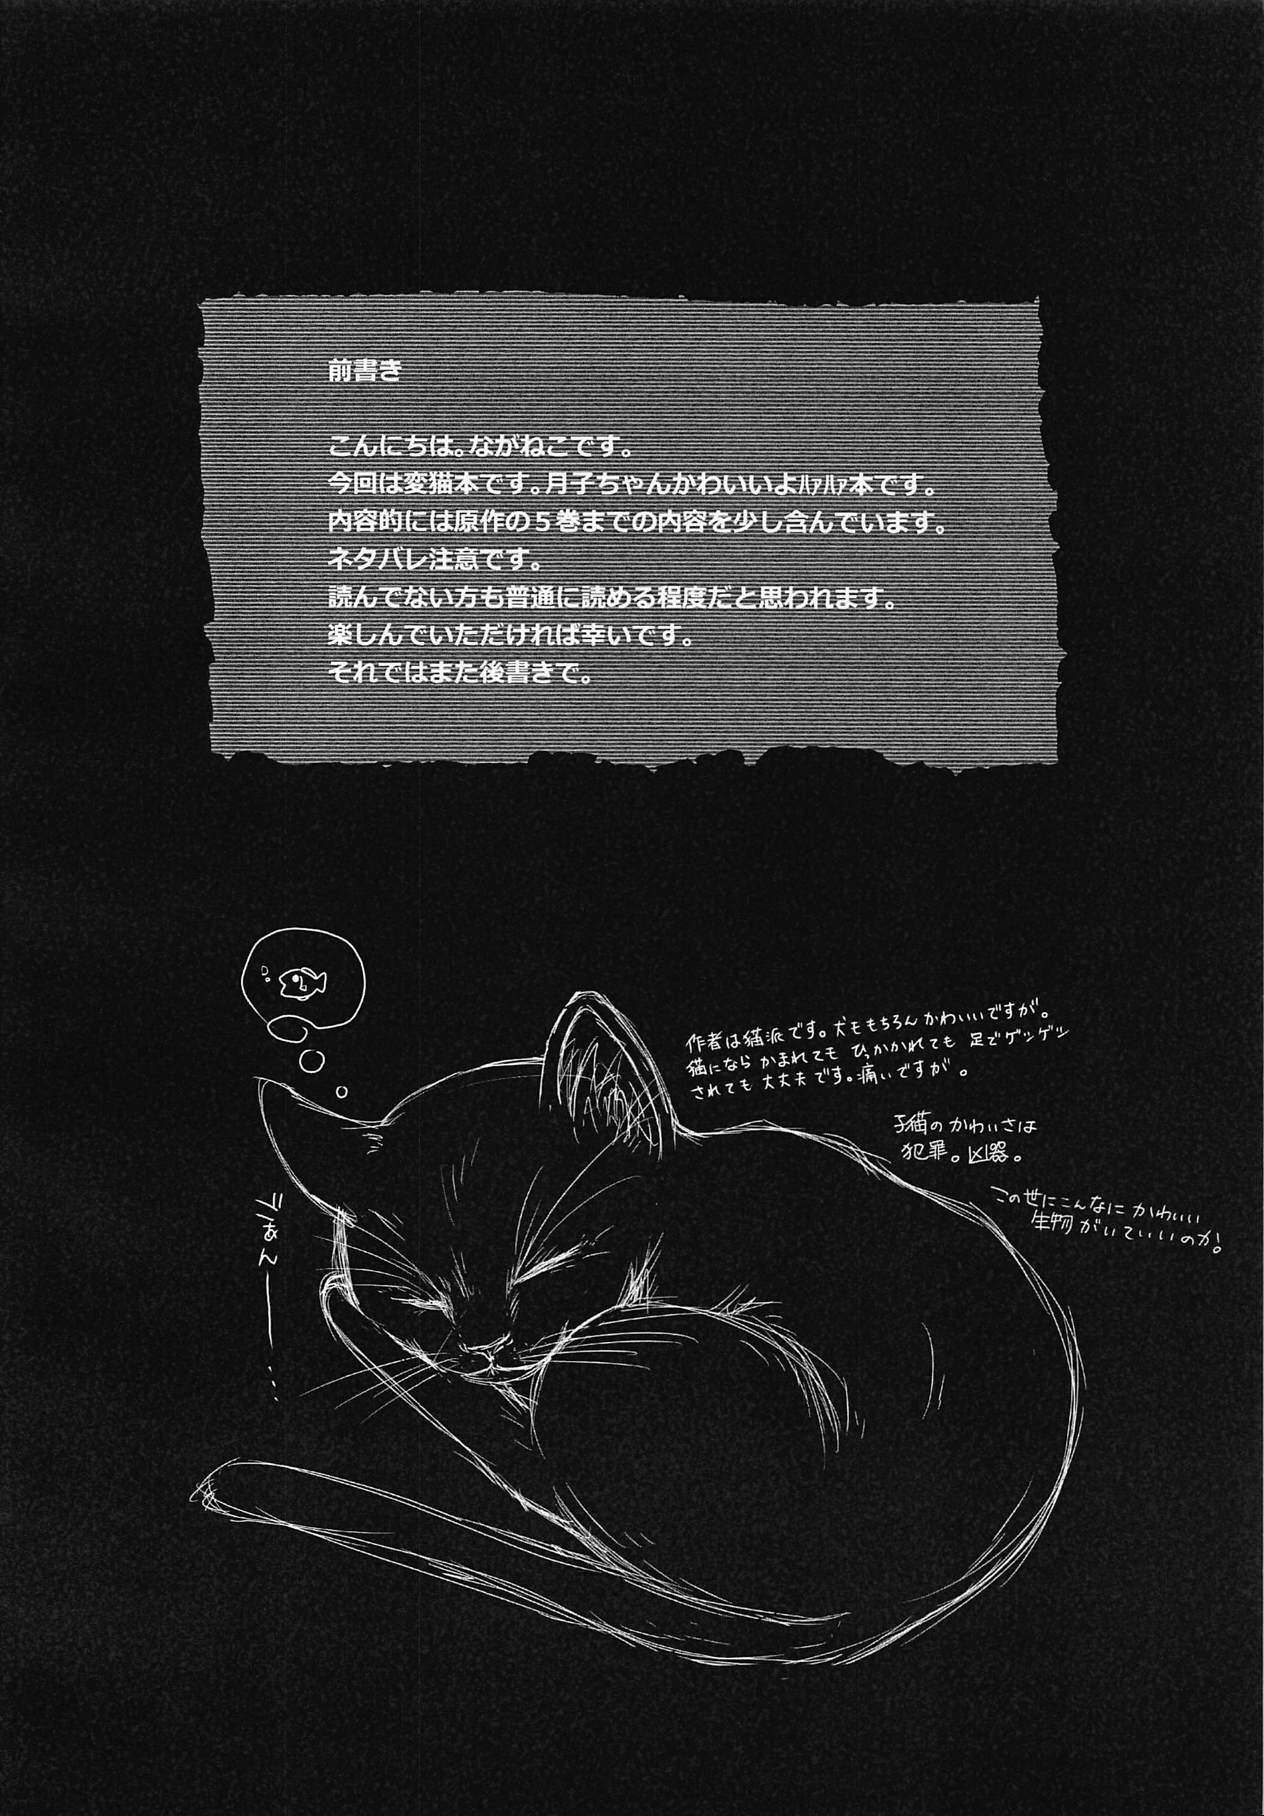 前書き
こんにちは。ながねこです。
今回は変猫本です。月子ちゃんかわいいよﾊｧﾊｧ本です。
内容的には原作の５巻までの内容を少し含んでいます。
ネタバレ注意です。
読んでない方も普通に読める程度だと思われます。
楽しんでいただければ幸いです。
それではまた後書きで。
作者は猫派です。犬ももちろんかわいいですが。
猫になら かまれても ひっかかれても 足でゲシゲシ
されても大丈夫です。痛いですが。
子猫のかわいさは
犯罪。凶器。
この世にこんなにかわいい
生物がいていいのか。